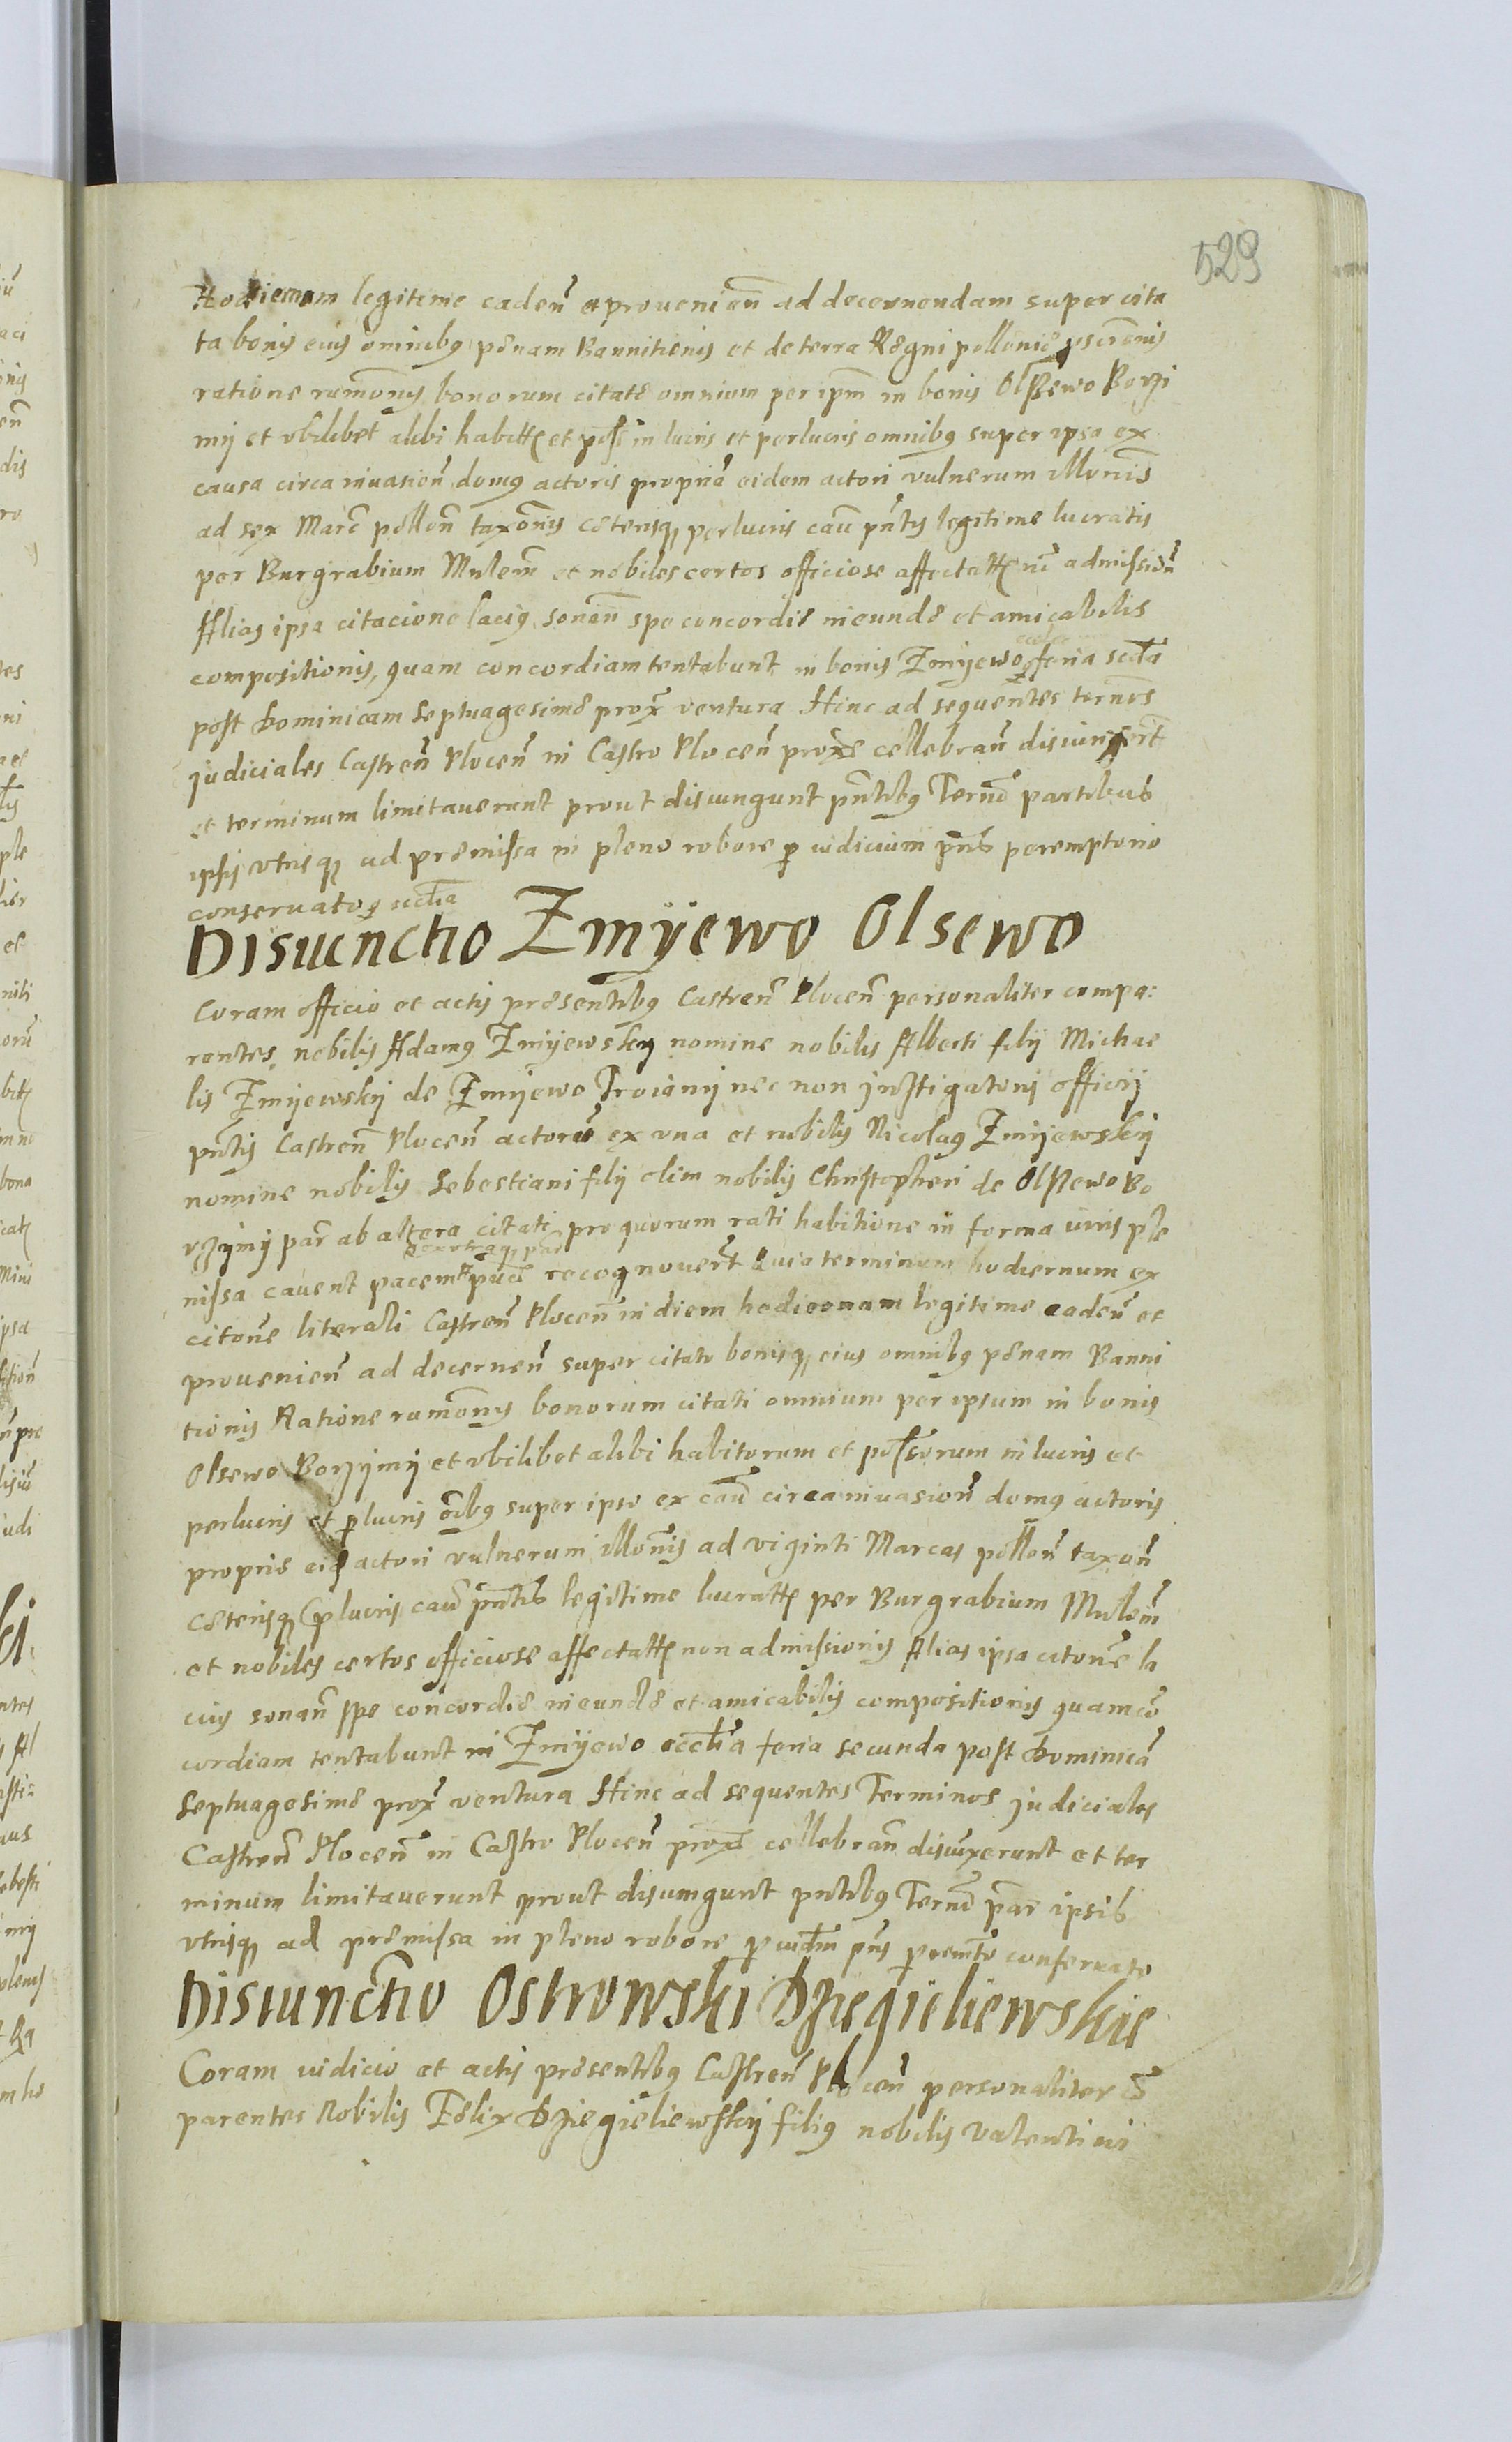 529
Hodiernam legitime caden̄ et provenien̄ ad decernendam super cita
ta bonis eius omnibꝫ pęnam Bannitionis et de terra Regni pollonię
ratione rumōnis bonorum citatę omnium per ipm̄ in bonis Olszewo Borzi
mij et vbilibet alibi habitt et poss in lucris et perlucris omnibꝫ super ipsa ex
causa circa invasion̄ domus actoris proprię eidem actori vulnerum illōnis
ad sex Marc̄ pollon̄ taxōnis cęterisqꝫ perlucris caū pn̄tis legitime lucratis
per Burgrabium Mulem̄ et nobiles certos officiose affectatt nō admission̄
Alias ipsa citacione lacius sonan̄ spe concordię ineundę et amicabilis
compositionis, quam concordiam tentabunt in bonis Zmijewo feria scd̄a
post Dominicam Septuagesimę prox̄ ventura Hinc ad sequentes termōs
judiciales Castren̄ Plocen̄ in Castro Plocen̄ proxe cellebran̄ disiunxer̄t
et terminum limitaverunt prout disiungunt pn̄tibꝫ Termō partibus
ipsis vtrisqꝫ ad pręmissa in pleno robore p iudicium pn̄s peremptorio
conservato
Disiunctio Zmijewo Olsewo
Coram officio et actis pręsentibꝫ Castren̄ Plocen̄ personaliter compa:
rentes, nobilis Adamꝫ Zmijewskij nomine nobilis Alberti filij Michae
lis Zmijewskij de Zmijewo Troianij nec non instigatoris officij
pn̄tis Castren̄ Plocen̄ actorū ex una et nobilis Nicolaꝫ Zmijewskij
nomine nobilis Sebestiani filij olim nobilis Christopheri de Olszewo Bo
rzymij par̄ ab altera citati pro quorum rati habitione in forma iuris ple
nissa cavent pacem recognover̄t Quia terminum hodiernum ex
citōne literali Castren̄ Plocen̄ in diem hodiernam legitime caden̄ et
provenien̄ ad decernen̄ super citato bonisqꝫ eius omnibꝫ pęnam Banni
tionis Ratione rumōnis bonorum citati omnium per ipsum in bonis
Olsewo Borzymij et vbilibet alibi habitorum et possorum in lucris et
perlucris et p lucris ōibꝫ super ipso ex caū circa invasion̄ domus actoris
proprię eid actori vulnerum illōnis ad viginti Marcas pollon̄ taxon̄
Cęterisqꝫ p lucris caū pn̄tis legitime lucratt per Burgrabium Mulem̄
et nobiles certos officiose affectatt non admissionis Alias ipsa citōne la
cius sonan̄ spe concordię ineundę et amicabilis compositionis quam cō
cordiam tentabunt in Zmijewo eccl̄ia feria secunda post Dominicā
Septuagesimę prox̄ ventura Hinc ad sequentes Terminos judiciales
Castren̄ Plocen̄ in Castro Plocen̄ prox̄ cellebran̄ disiūxerunt et ter
minum limitaverunt prout disiungunt pntibꝫ Termō par̄ ipsis
vtrisqꝫ ad pręmissa in pleno robore p iudm̄ pn̄s p̄remt̄o conservato
Disiunctio Ostrowski Dziegieliewskie
Coram iudicio et actis pręsentibꝫ Castren̄ Plocen̄ personaliter cō
parentes Nobilis Fęlix Dziegieliewskij filiꝫ nobilis Valentini